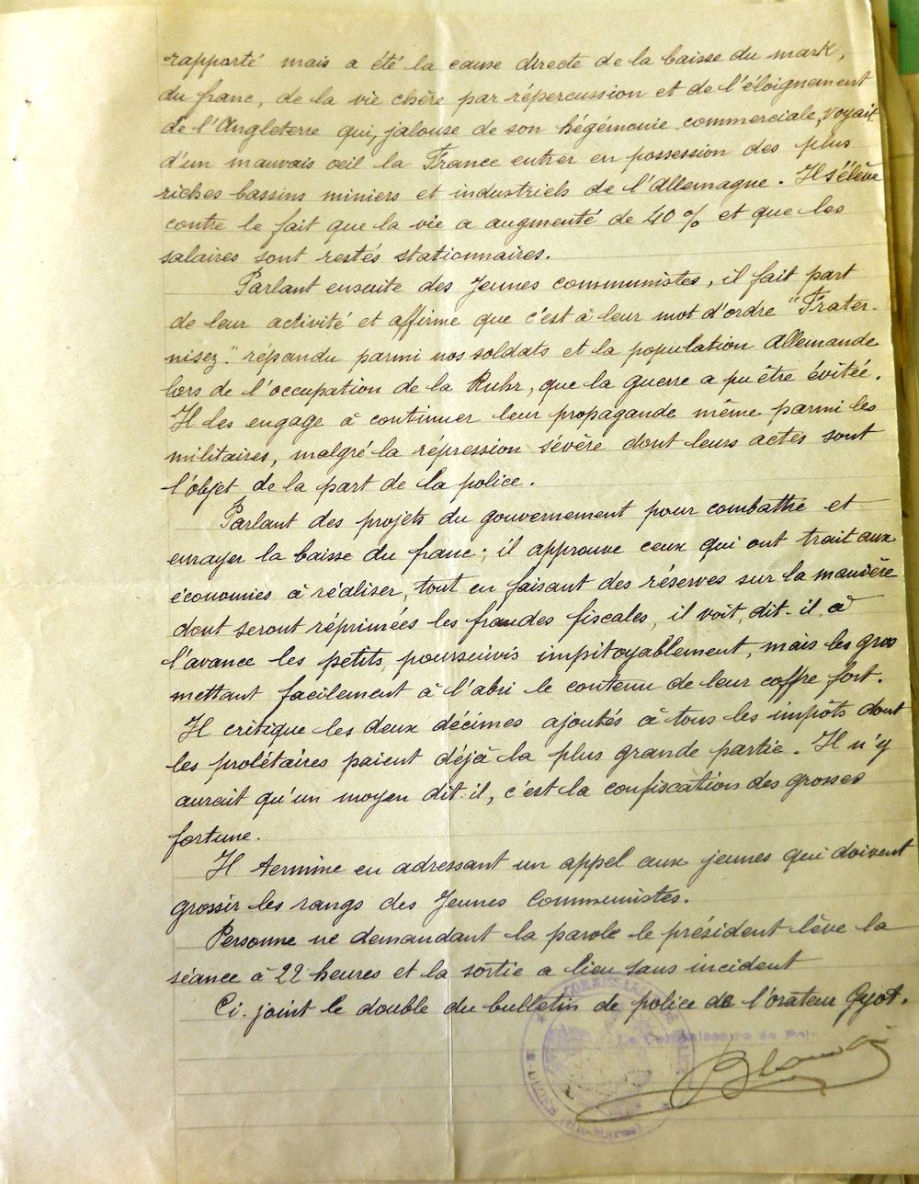 rapporté mais a été la cause directe de la baisse du mark,
du franc, de la vie chère par répercussion et de l'éloignement
de l'Angleterre qui, jalouse de son hégémonie commerciale, voyait
d'un mauvais oeil la France entrer en possession des plus
riches bassins miniers et industriels de l'Allemagne. Il s'élève
contre le fait que la vie a augmenté de 40 % et que les
salaires sont restés stationnaires.
Parlant ensuite des Jeunes communistes, il fait part
de leur activité et affirme que c'est à leur mot d'ordre "Frater-
nisez." répandu parmi nos soldats et la population Allemande
lors de l'occupation de la Ruhr, que la guerre a pu être évitée.
Il les engage à continuer leur propagande même parmi les
militaires, malgré la répression sévère dont leurs actes sont
l'objet de la part de la police.
Parlant des projets du gouvernement pour combattre et
enrayer la baisse du franc; il approuve ceux qui ont trait aux
économies à réaliser, tout en faisant des réserves sur la manière
dont seront réprimées les fraudes fiscales, il voit, dit-il, à
l'avance les petits, poursuivis impitoyablement, mais les gros
mettant facilement à l'abri le contenu de leur coffre fort.
Il critique les deux décimes ajoutés à tous les impôts dont
les prolétaires paient déjà la plus grande partie. Il n'y
aurait qu'un moyen dit-il, c'est la confiscation des grosses
fortune.
Il termine en adressant un appel aux jeunes qui doivent
grossir les rangs des Jeunes Communistes.
Personne ne demandant la parole le président lève la
séance à 22 heures et la sortie a lieu sans incident
Ci-joint le double du bulletin de police de l'orateur Gyot.
Le Commissaire de Pol